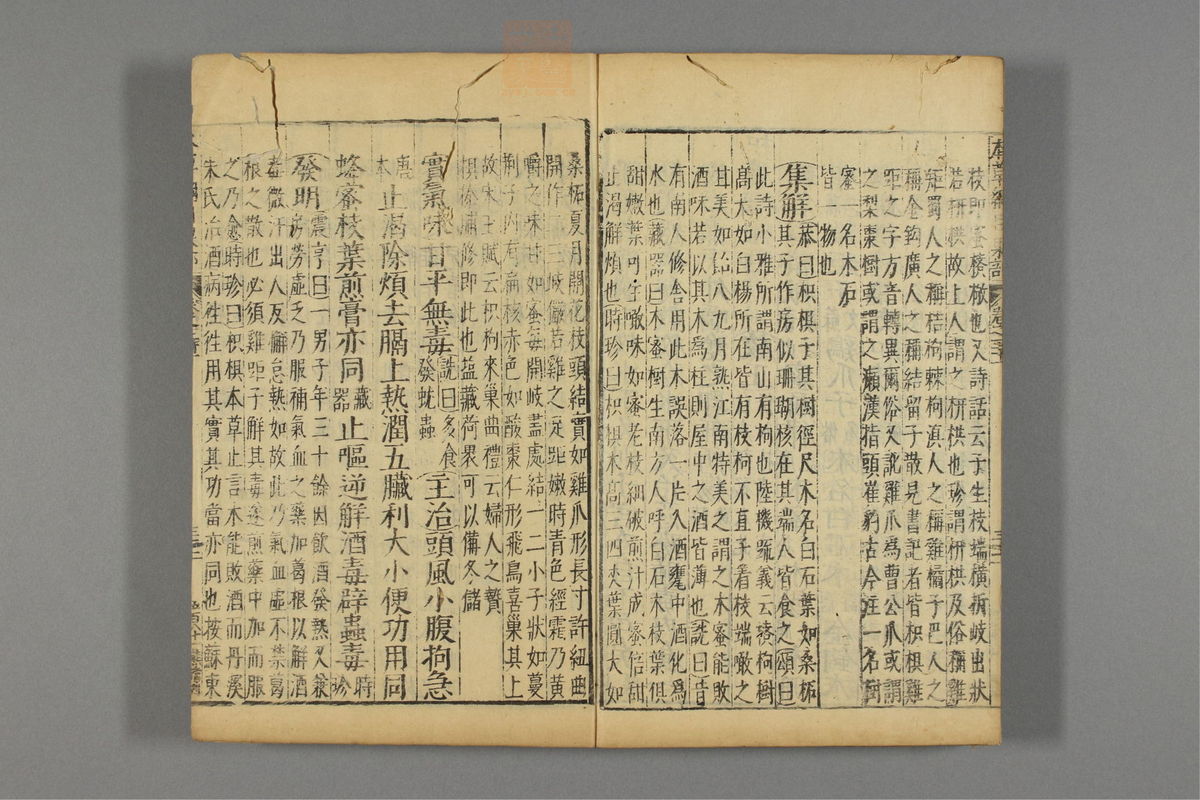 枝即蜜樜橔也又詩話云子生枝端橫折岐出狀
若枅栱故上人謂之枅栱也珍謂枅栱及俗稱雞
距蜀人之稱桔枸棘枸滇人之稱雞橘子巴人之
稱金鈎廣人之稱結留子散見書記者皆枳椇雞
距之字方音轉異爾俗又訛雞爪爲曹公爪或謂
之梨棗樹或謂之癩漢指頭崔豹古今注一名樹
蜜一名木石
皆一物也
集解恭曰枳椇其樹徑尺木名白石葉如桑柘
其子作房似珊瑚核在其端人皆食之頌曰
此詩小雅所謂南山有枸也陸機疏義云樜枸樹
高大如白楊所在皆有枝柯不直子着枝端噉之
甘美如飴八九月熟江南特美之木蜜能敗
酒味若以其木爲柱則屋中之酒皆薄也詵曰昔
有南人修舍用此木誤落一片入酒甕中酒化爲
水也藏器曰木蜜樹生南方人呼白石木枝葉俱
甜嫩葉可生噉味如蜜老枝細破煎汁成蜜倍甜
止渴解煩也時珍曰枳椇木高三四丈葉圓大如
桑柘夏月開花枝頭結實如雞爪形長寸許紐曲
開作二三岐儼若雞之足距嫩時青色經霜乃黃
嚼之味甘如蜜每開岐盡處結一二小子狀如蔓
荆子內有扁核赤色如酸棗仁形飛鳥喜巢其上
故宋玉賦云枳枸來巢曲禮云婦人之贄
椇榛脯修即此也鹽藏荷裹可以備冬儲
實氣味甘平無毒詵曰多食發蚘蟲主治頭風小腹拘急
唐本止渴除煩去膈上熱潤五臟利大小便功用同
蜂蜜枝葉煎膏亦同藏器止嘔逆解酒毒辟蟲毒時珍
發明震亨曰一男子年三十餘因飲酒發熱又兼
房勞虛乏乃服補氣血之藥加葛根以解酒
毒微汗出人反懈怠熱如故此乃氣血虛不禁葛
根之散也必須雞距子解其毒遂煎藥中加而服
之乃愈時珍曰枳椇本草止言木能敗酒而丹溪
朱氏治酒病徃徃用其實其功當亦同也按蘇東